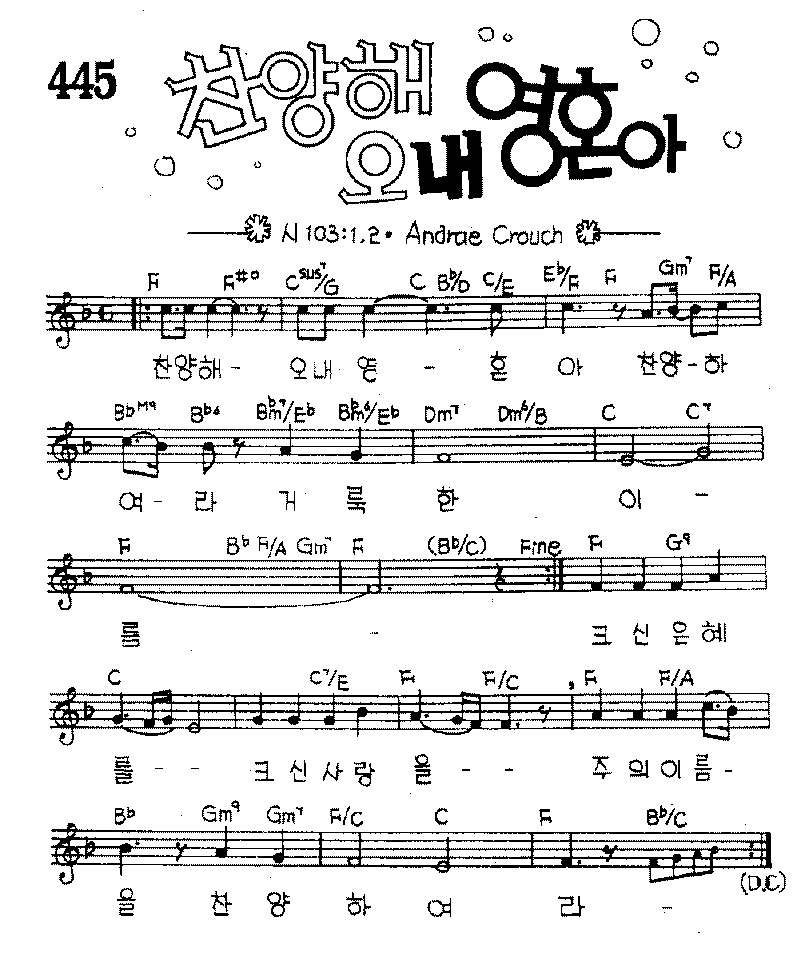 445
찬양해
오 내 영혼아
시 103:1,2 • Andrae Crouch
F F#o Csus7/G C Bb/D C/E Eb/F F Gm7 F/A
찬양해 - 오 내 영 - 혼 아 찬양 - 하
BbM9 Bb6 Bbm7/Eb Bbm6/Eb Dm7 Dm6/B C C7
여 - 라 거 룩 한 이 -
F Bb F/A Gm7 F (Bb/C) Fine F G9
름 - 크 신 은 혜
C C7/E F F/C F F/A
를 - - 크 신 사 랑 을 - - 주 의 이 름 -
Bb Gm9 Gm7 F/C C F Bb/C
을 찬 양 하 여 라 -
(D.C)